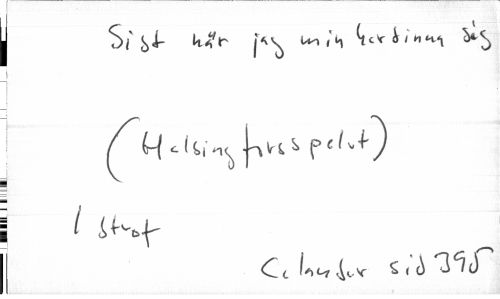 Sist när jag min herdinna såg
(Helsingforsspelet)
1 strof
Celander sid 395